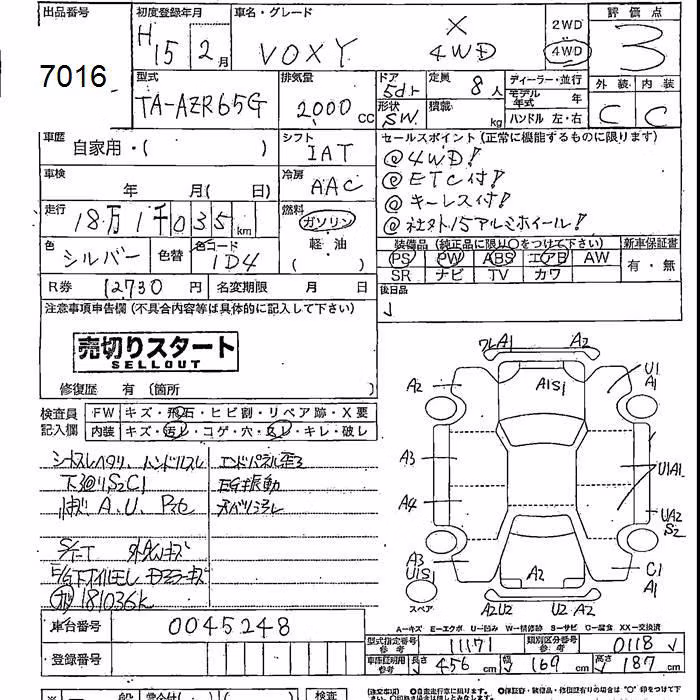 出品番号 初度登録年月 車名・グレード 評価点
7016 H15 2月 VOXY X 4WD 2WD 4WD 3
型式 排気量 ドア 定員 ディーラー・並行 外装 内装
TA-AZR65G 2000cc 5dr 8人 モデル年式 年 C C
形状 積載 ハンドル 左・右
SW kg
車歴 自家用・( ) シフト IAT セールスポイント(正常に機能するものに限ります)
@4WD!
車検 年 月( 日) 冷房 AAC @ETC付!
@キーレス付!
走行 18万1千035km 燃料 ガソリン @社外15アルミホイール!
軽・油
( )
色 シルバー 色替 色コード 1D4 装備品(純正品に限り○をつけて下さい) 新車保証書
PS PW ABS エアB AW 有・無
SR ナビ TV カワ
R券 12730円 名変期限 月 日 後日品
注意事項申告欄(不具合内容等は具体的に記入して下さい)
売切りスタート
SELLOUT
修復歴 有(箇所 )
検査員記入欄 FW キズ・飛石・ヒビ割・リペア跡・X要
内装 キズ・汚レ・コゲ・穴・スレ・キレ・破レ
シートスレヘタリ、ハンドルスレ エンドパネル歪ミ
下廻リS2C1 EG振動
A.U.
181036k
ワレA1 A2
A2 A1S1 U1 A1
A3 U1A1
A4 UA2 S2
A3 U1S1 A2 C1 A1
スペア A2U2 U2 A2
A-キズ E-エクボ U-凹み W-補修跡 S-サビ C-腐食 XX-交換済
車台番号 0045248
型式指定番号 参考 11171 類別区分番号 参考 0118
登録番号
車庫証明用参考 長さ 456cm 幅 169cm 高さ 187cm